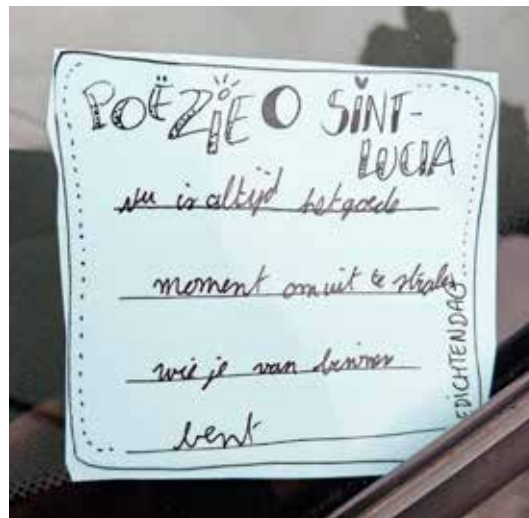 POËZIE O SINT-
LUCIA
nu is altijd het goede
moment om uit te stralen
wie je van binnen
bent
EDICHTENDAG